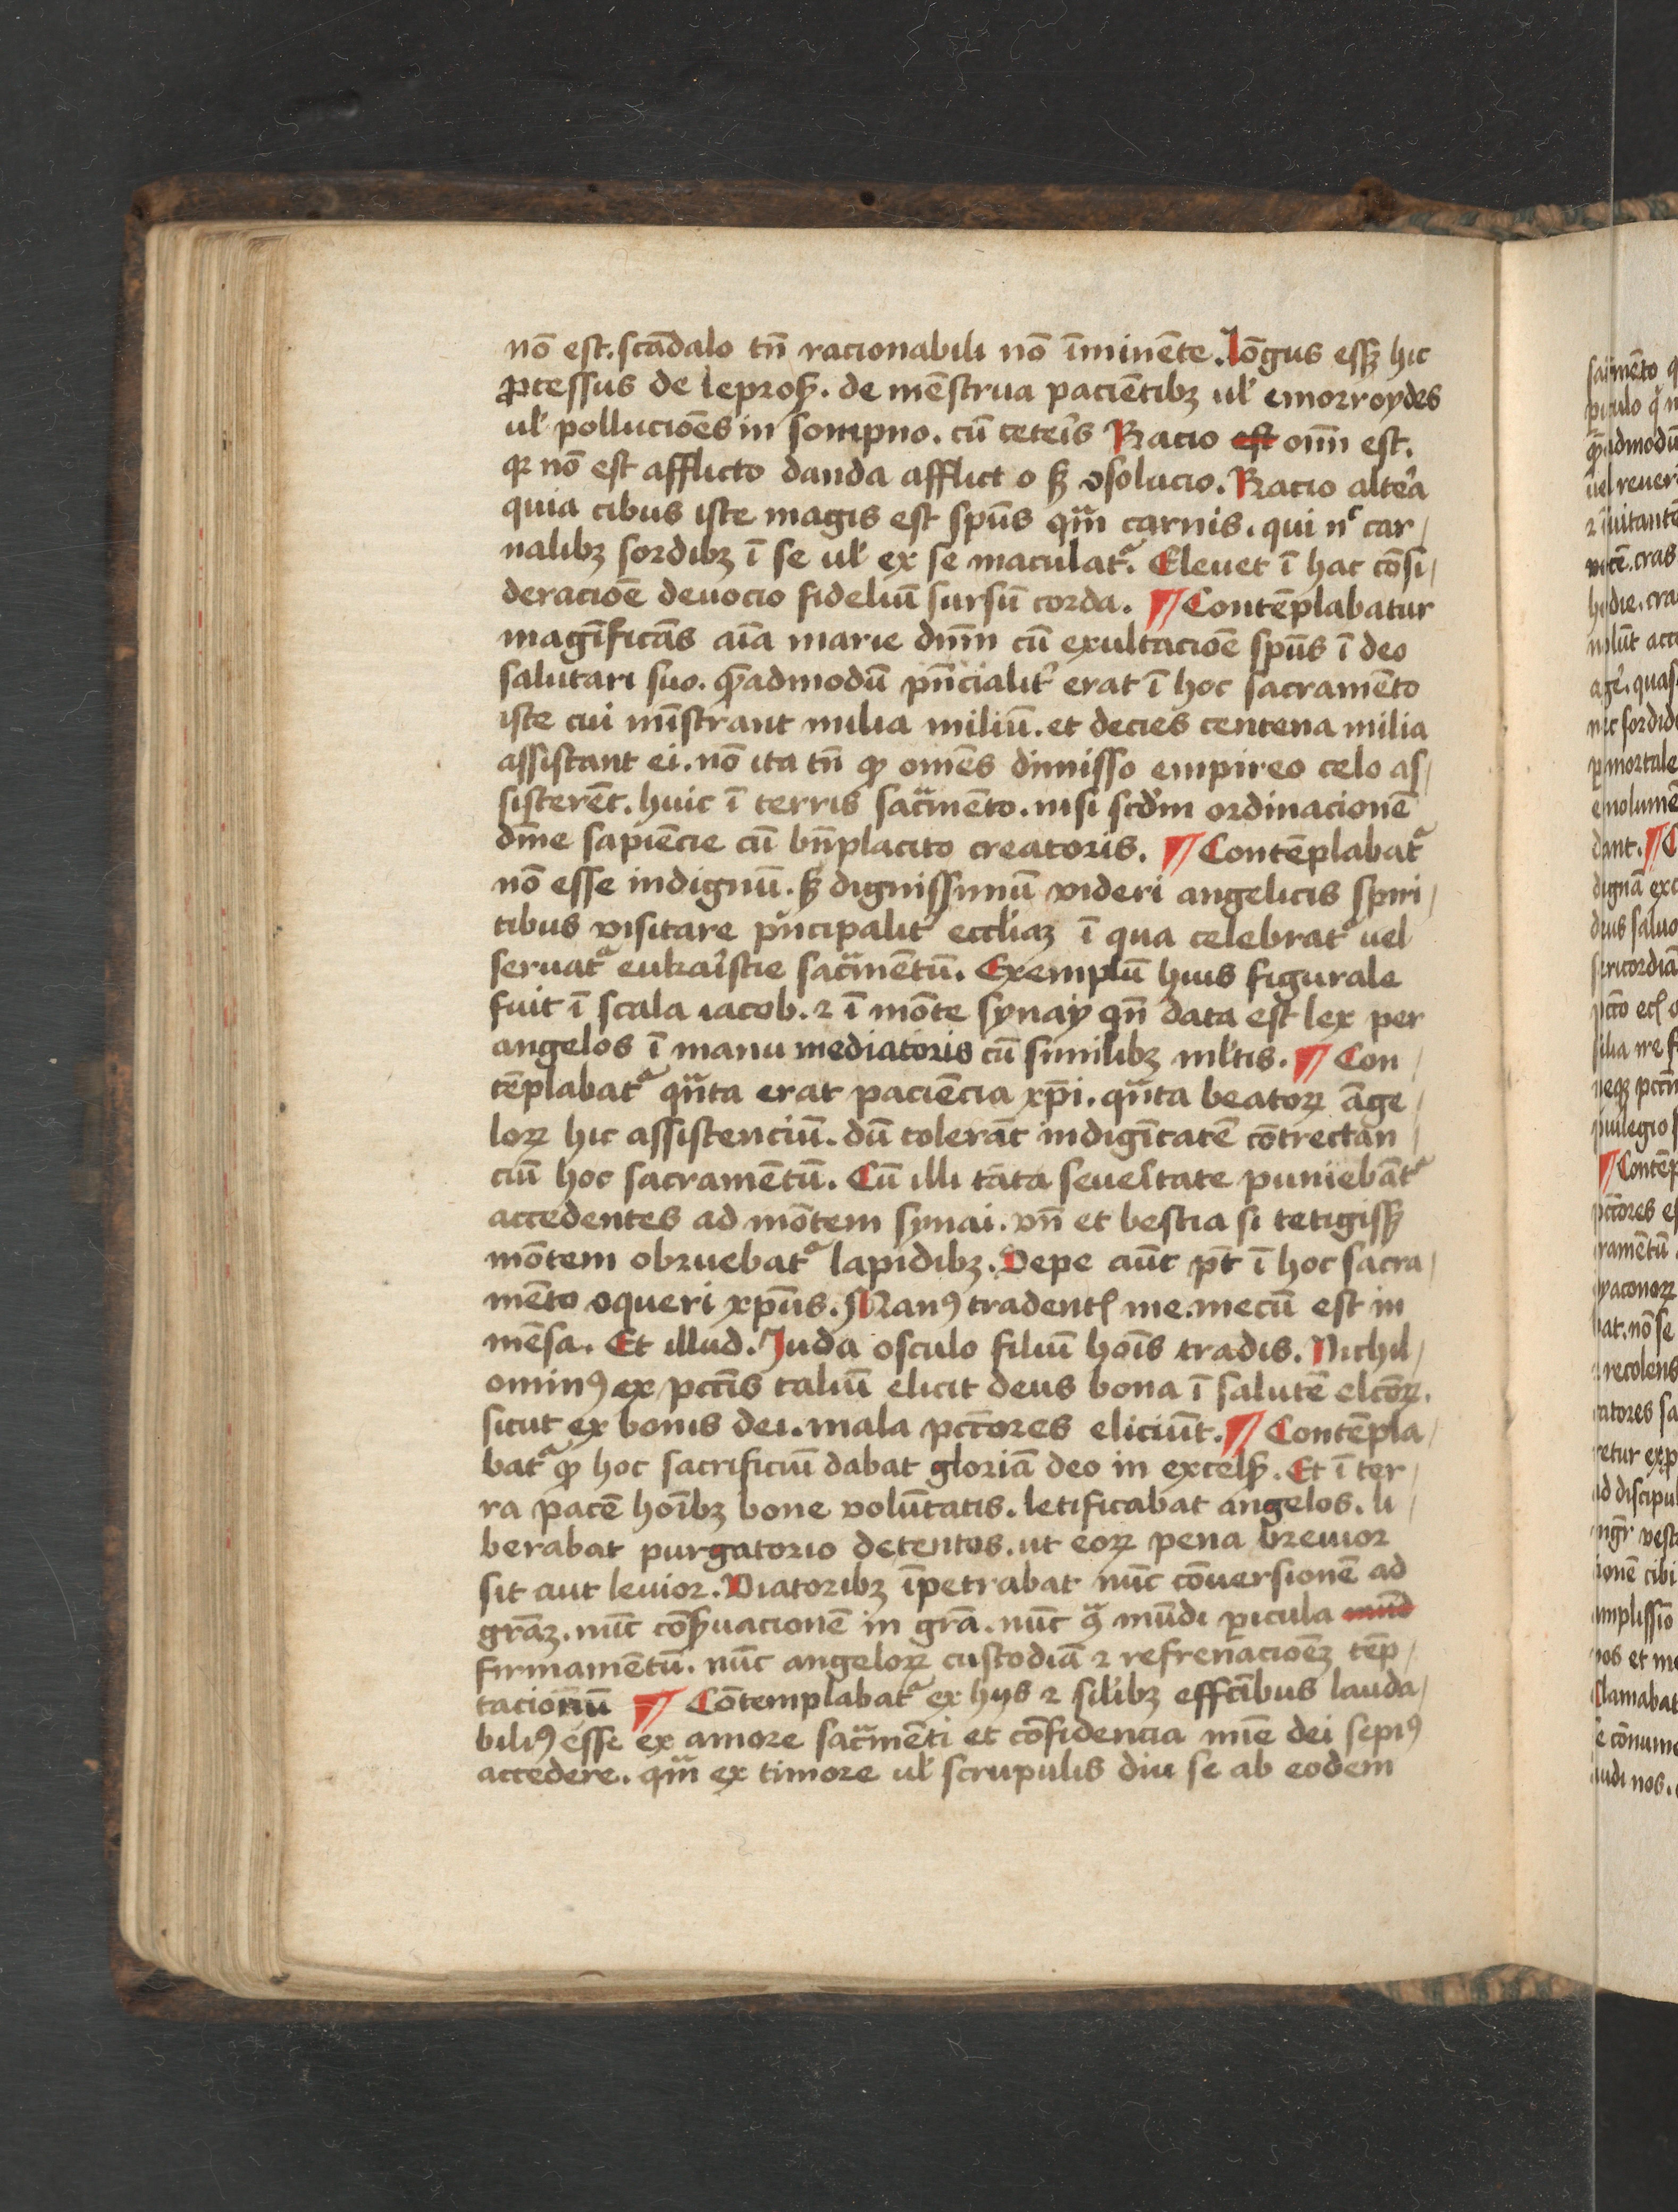 nō est. scādalo tn̄ racionabili nō īminēte. Lōgus essꝫ hic
ꝓcessus de leprosꝭ. de mēstrua paciētibꝫ ul̓ emorroydes
ul̓ pollucioēs in sompno. cū ceteĩs Racio est om̄ est.
qꝛ nō est afflicto danda afflict o sꝫ ꝯsolacio. Racio alteã
quia cibus iste magis est sp̄us qͣm carnis. qui nͨ car/
nalibꝫ sordibꝫ ī se ul̓ ex se maculatᷣ. Eleuet ī hac cōsi/
deracioē deuocio fideliū sursū corda. ¶ Contēplabatur
magīficās aīa marie dn̄m cū exultacioē sp̄us ī deo
salutari suo. q̄admodū pn̄cialit᷑ erat ī hoc sacramēto
iste cui mīstrant milia miliū. et decies centena milia
assistant ei. nō ita tn̄ ꝙ omēs dimisso empireo celo as/
sisterēt. huic ī terris sac̄mēto. nisi scd̓m ordinacionē
dīne sapiēcie cū bn̄placito creatoris. ¶ Contēplabatᷣ
nō esse indignū. sꝫ dignissimū videri angelicis spiri/
tibus visitare pͥncipalit᷑ eccl̓iaꝫ ī qua celebratᷣ uel
seruatᷣ eukaĩstie sac̄mētū. Exemplū huius figurale
fuit ī scala iacob. ⁊ ī mōte synay qn̄ data est lex per
angelos ī manu mediatoris cū similibꝫ ml̓tis. ¶ Con/
tēplabatᷣ qͣnta erat paciēcia xp̄i. qͣnta beatoꝝ āge/
loꝝ hic assistenciū. dū tolerāt indigītatē cōtrectan/
ciū hoc sacramētū. Cū illi tāta seueĩtate puniebātᷣ
accedentes ad mōtem synai. vn̄ et bestia si tetigissꝫ
mōtem obruebatᷣ lapidibꝫ. Depe aūt pt̄ ī hoc sacra/
mēto ꝯqueri xp̄us. Manꝰ tradentꝭ me. mecū est in
mēsa. Et illud. Juda osculo filiū hoīs tradis. Nichil/
ominꝰ ex pccīs taliū elicit deus bona ī salutē elcōꝝ.
sicut ex bonis dei. mala pcc̄ores eliciūt. ¶ Contēpla/
batᷣ ꝙ hoc sacrificiū dabat gloriā deo in excelsꝭ. Et ī ter/
ra pacē hoībꝫ bone volūtatis. letificabat angelos. li/
berabat purgatorio detentos. ut eoꝝ pena breuior
sit aut leuior. Viatoribꝫ īpetrabat nūc cōuersionē ad
grāꝫ. nūc cōsꝭuacionē in grā. nūc ꝯͣ mūdi ꝑicula mūd
firmamētū. nūc angeloꝝ custodiā ⁊ refrenacioēꝫ tēp/
tacionū ¶ Cōtemplabatᷣ ex hijs ⁊ sil̓ibꝫ effc̄ibus lauda/
bilꝰ esse ex amore sac̄mēti et cōfidencia mīe dei sepiꝰ
accedere. qͣm ex timore ul̓ scrupulis diu se ab eodem